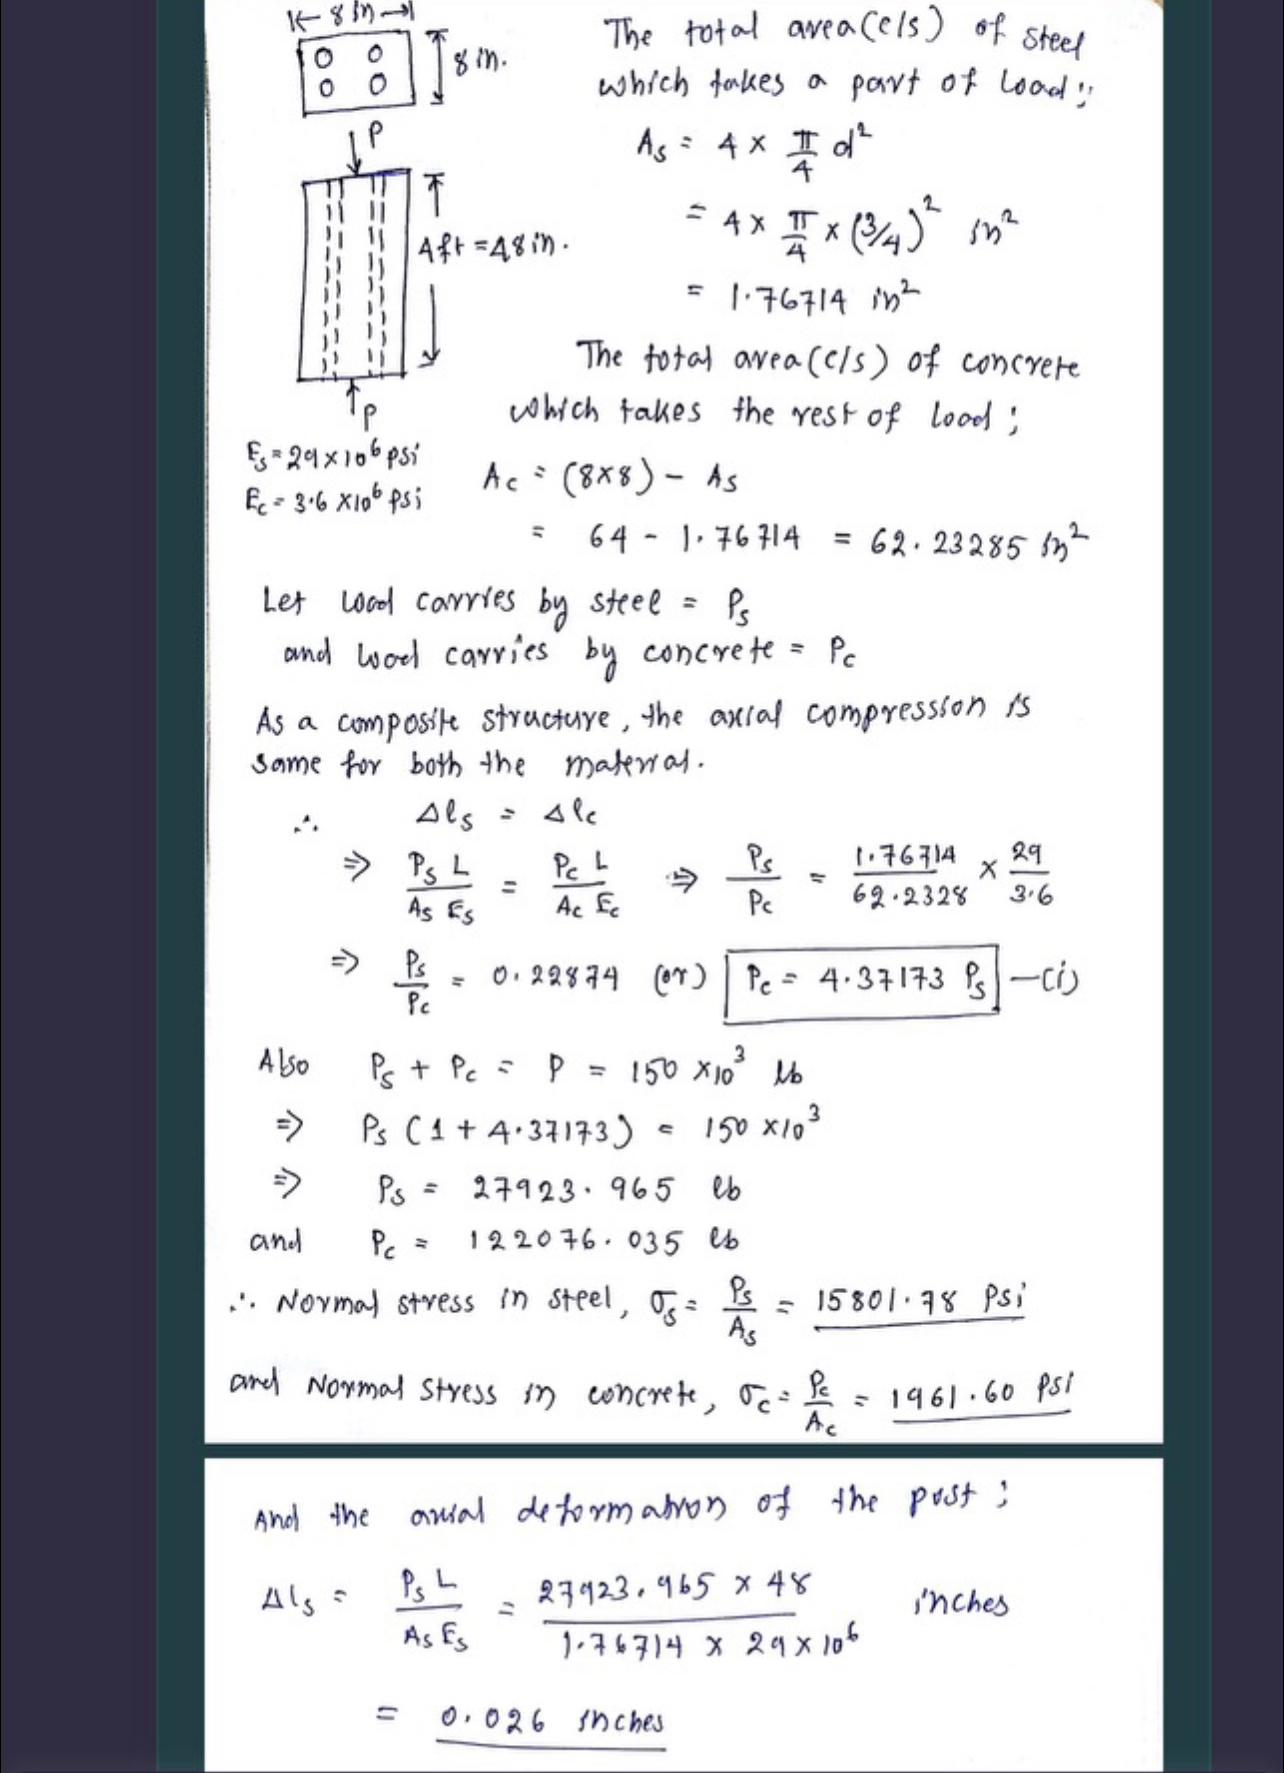 8 in
8 in.
P
4 ft = 48 in.
P
Es = 29 × 10⁶ psi
Ec = 3.6 × 10⁶ psi
The total area (c/s) of steel
which takes a part of load ;
As = 4 × π/4 d²
= 4 × π/4 × (3/4)² in²
= 1.76714 in²
The total area (c/s) of concrete
which takes the rest of load ;
Ac = (8×8) - As
= 64 - 1.76714 = 62.23285 in²
Let load carries by steel = Ps
and load carries by concrete = Pc
As a composite structure, the axial compression is
same for both the material.
∴ Δls = Δlc
⇒ Ps L / As Es = Pc L / Ac Ec ⇒ Ps / Pc = 1.76714 / 62.2328 × 29 / 3.6
⇒ Ps / Pc = 0.22874 (or) Pc = 4.37173 Ps —(i)
Also Ps + Pc = P = 150 × 10³ lb
⇒ Ps (1 + 4.37173) = 150 × 10³
⇒ Ps = 27923.965 lb
and Pc = 122076.035 lb
∴ Normal stress in steel, σs = Ps / As = 15801.78 psi
and Normal stress in concrete, σc = Pc / Ac = 1961.60 psi
And the axial deformation of the post ;
Δls = Ps L / As Es = 27923.965 × 48 / 1.76714 × 29 × 10⁶ inches
= 0.026 inches